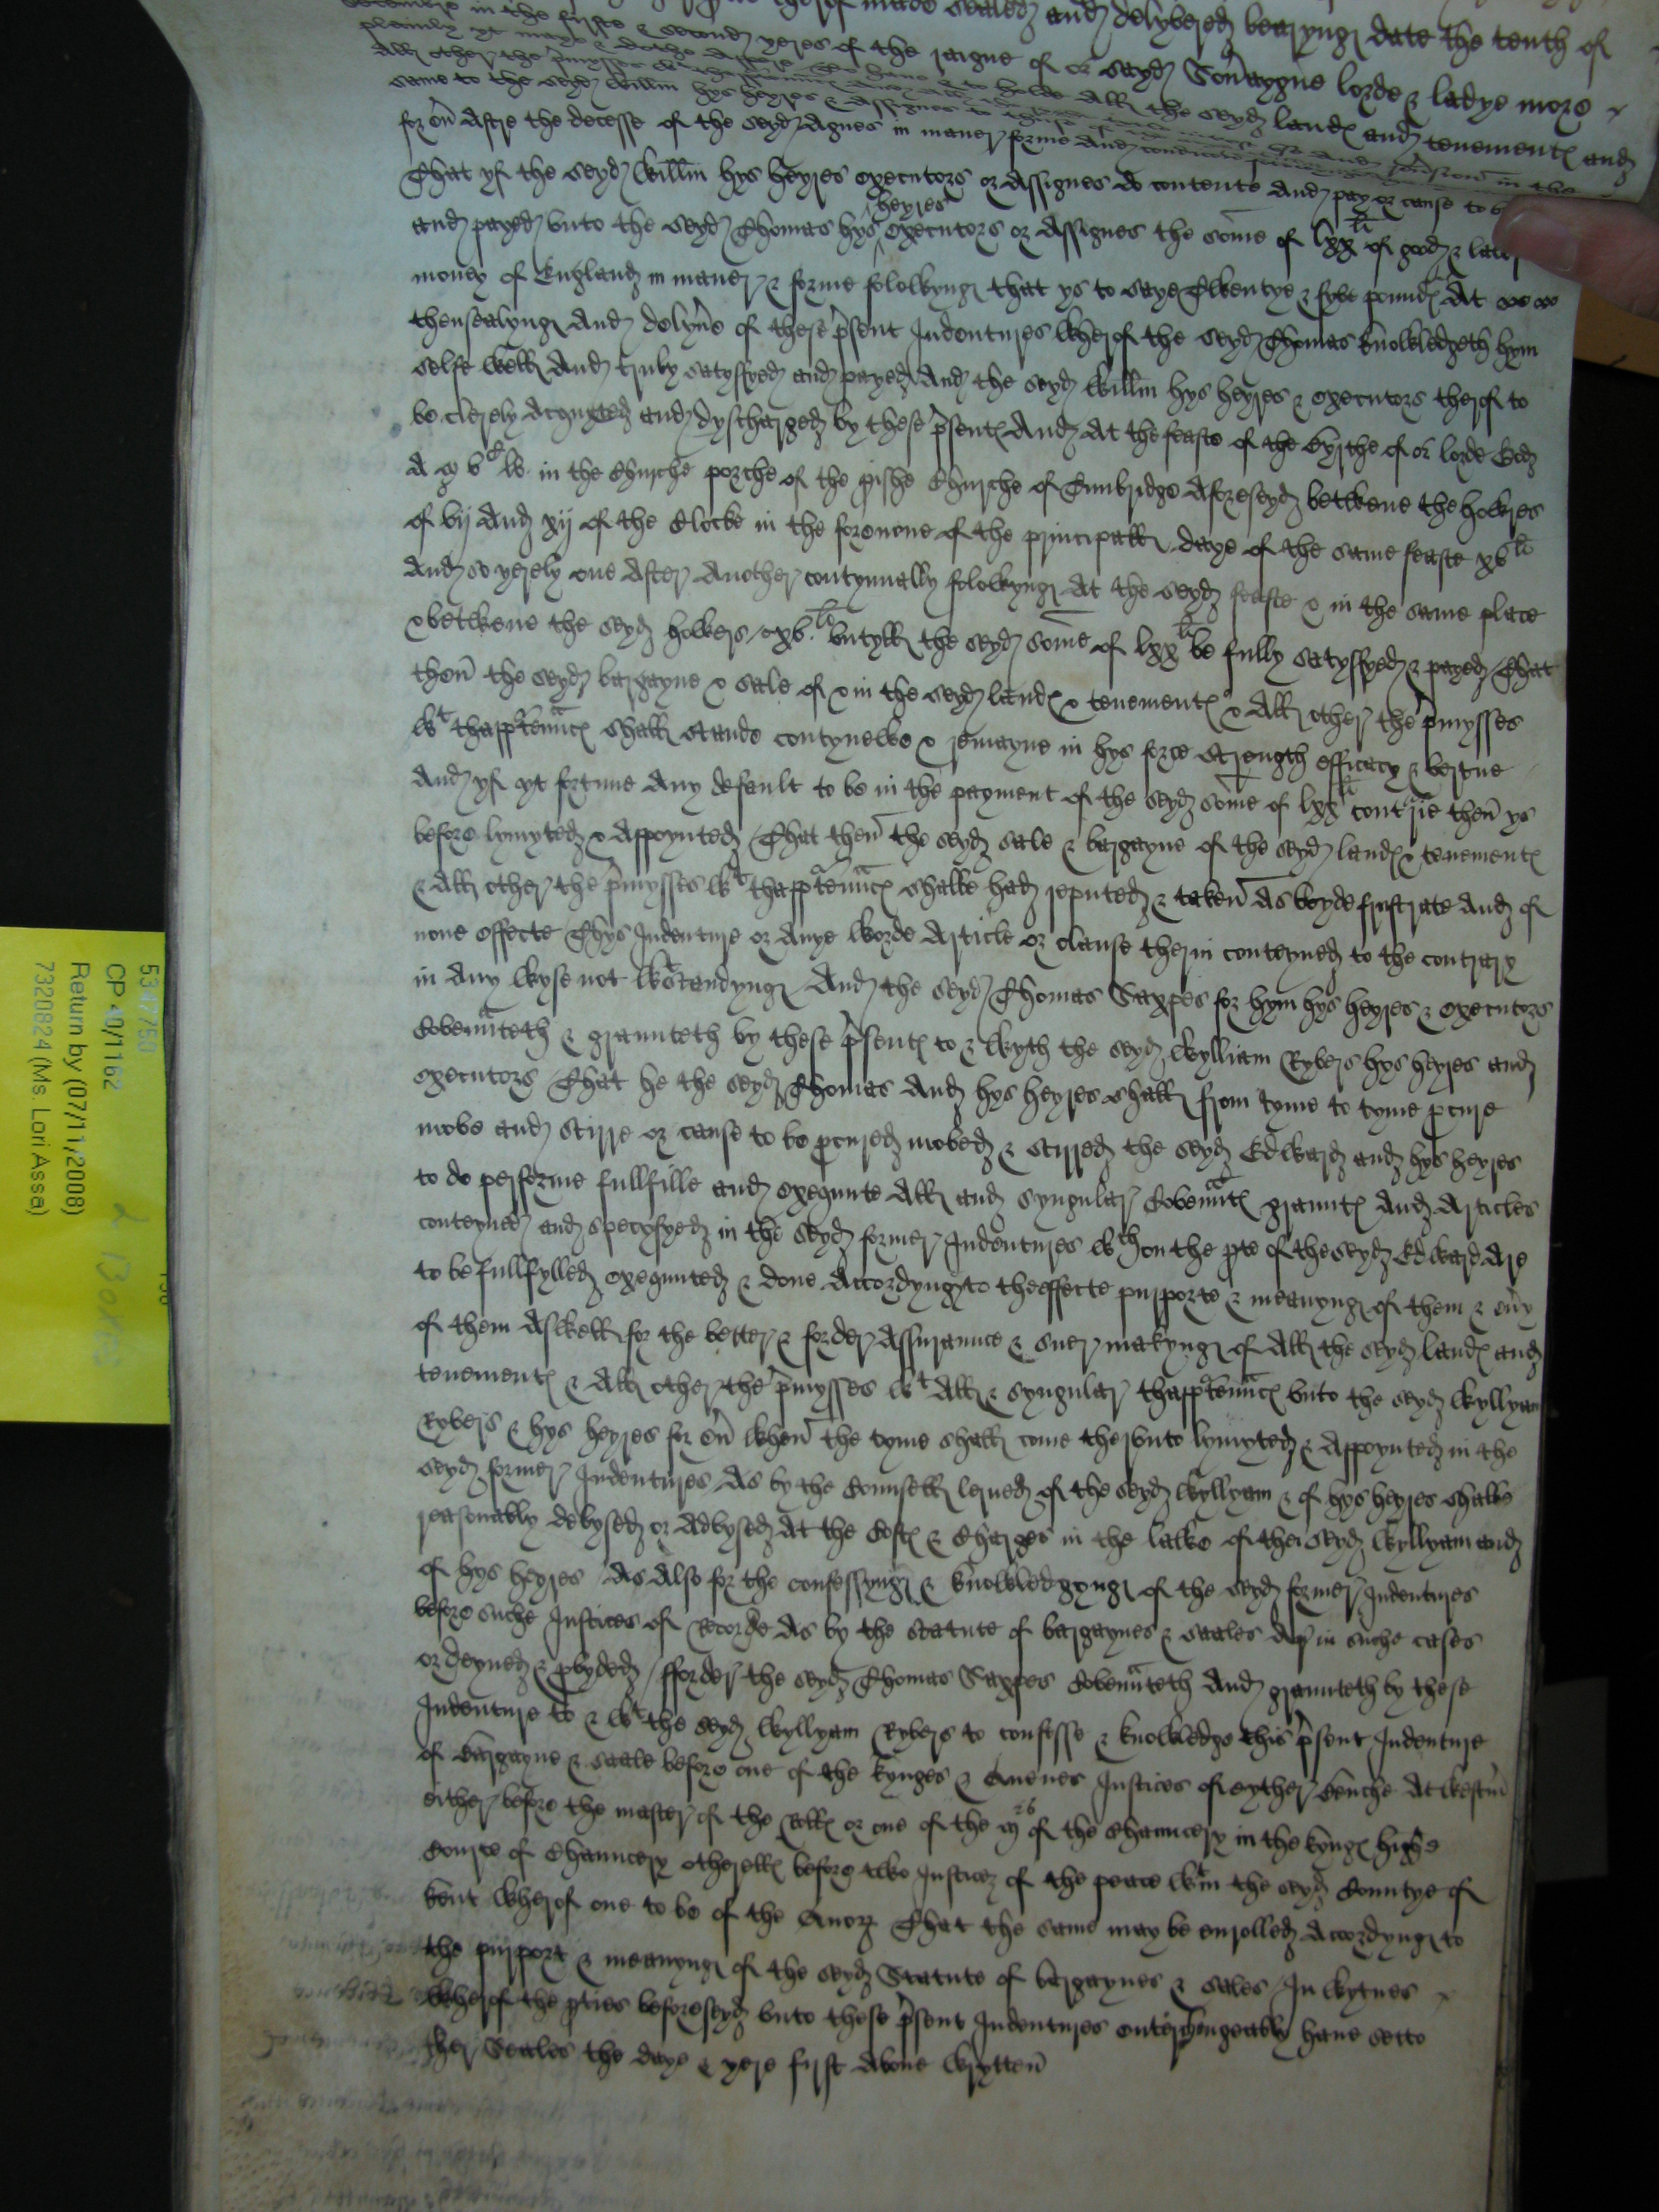 therof made sealed and delyvered bearyng date the tenth of
in the firste & second yeres of the raigne of or seyd Soveraygne lorde & ladye more
plainly yt maye & dothe appere To have & to holde All the seyd landes and tenementes and
All other the pmysses
same to the seyd Willm hys heyres & Assignes to
for ev Aftre the decesse of the seyd Agnes in maner forme And condicon
That yf the seyd Willm hys heyres executors or Assignes do contente And pay or cause to
and payed unto the seyd Thomas hys heyres executors or Assignes the some of lxx li of good & laufull
money of England in maner & forme folowyng that ys to saye Twentye & fyve poundes At
thensealyng And delyve of these psent Indentures wherof the seyd Thomas knowledgeth hym
selfe well And truly satysfyed and payed And the seyd Willm hys heyres & executors therof to
be clerely Acquyted and dyscharged by these psentes And At the feaste of the byrthe of or lorde God
A m vc lv in the Churche porche of the pishe Churche of Tunbridge Aforeseyd betwene the howres
of vij And xij of the Clocke in the forenone of the principall daye of the same feaste xv li
And so yerely one After Another contynually folowyng At the seyd feaste & in the same place
& betwene the seyd howers xv li untyll the seyd some of lxx li be fully satysfyed & payed That
then the seyd bargayne & sale of & in the seyd landes & tenementes & All other the pmysses
wt thapptennces shall stande contynewe & remayne in hys force strength efficacy & vertue
And yf yt fortune Any default to be in the payment of the seyd some of lxx li contrarie then ys
before lymyted & Appoynted That then the seyd sale & bargayne of the seyd landes & tenementes
& All other the pmysses wt thapptennces shalbe had reputed & taken As voyde frustrate And of
none effecte Thys Indenture or Anye worde Article or clause therin conteyned to the contrary
in Any wyse not wtstandyng And the seyd Thomas Saxpes for hym hys heyres & executors
Covennteth & graunteth by these psentes to & wyth the seyd Wylliam Ryvers hys heyres and
executors That he the seyd Thomas And hys heyres shall from tyme to tyme pcure
move and stirre or cause to be pcured moved & stirred the seyd Edward and hys heyres
to do performe fullfille and exequute All and syngular Covenntes grauntes And Articles
conteyned and specyfyed in the seyd former Indentures wch on the pte of the seyd Edward Are
to be fullfylled exequuted & done Accordyng to theffecte purporte & meanyng of them & evy
of them Aswell for the better & forder Assuraunce & suer makyng of All the seyd landes and
tenementes & All other the pmysses wt All & syngular thapptennces unto the seyd Wyllyam
Ryvers & hys heyres for ev when the tyme shall come therunto lymyted & Appoynted in the
seyd former Indentures As by the Counsell lerned of the seyd Wyllyam & of hys heyres shalbe
reasonably devysed or Advysed At the Costes & Charges in the lawe of the seyd Wyllyam and
of hys heyres As Also for the confessyng & knowledgyng of the seyd former Indentures
before suche Justices of Recorde As by the statute of bargaynes & saales in suche cases
ordeyned & pvyded fforder the seyd Thomas Saxpes Covennteth And graunteth by these
Indenture to & wt the seyd Wyllyam Ryvers to confesse & knowledge this psent Indenture
of bargayne & saale before one of the kynges & Quenes Justices of eyther benche At Westm
either before the master of the Rolles or one of the of the Chauncery in the kynges highe
Courte of Chauncery otherells before two Justices of the peace wtin the seyd Countye of
Kent wherof one to be of the Quorz That the same may be enrolled Accordyng to
the purport & meanyng of the seyd Statute of bargaynes & sales In wytnes
wherof the pties beforeseyd unto these psent Indentures enterchungeably have sette
ther Seales the daye & yere first above wrytten
5347750
CP 40/1162
Return by (07/11/2008)
7320824 (Ms. Lori Assa)
2 Boxes